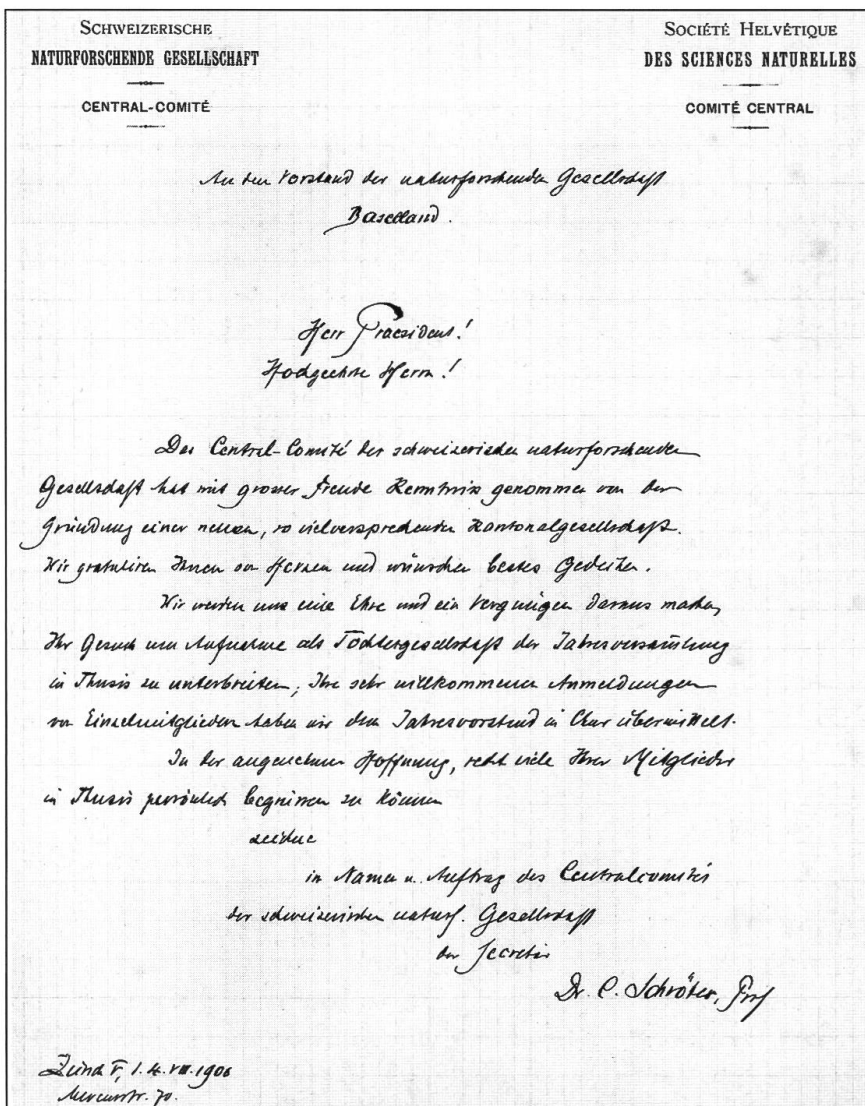 SCHWEIZERISCHE
NATURFORSCHENDE GESELLSCHAFT
CENTRAL-COMITÉ
SOCIÉTÉ HELVÉTIQUE
DES SCIENCES NATURELLES
COMITÉ CENTRAL
An den Vorstand der naturforschenden Gesellschaft
Baselland.
Herr Praesident!
Hochgeehrte Herrn!
Das Central-Comité der schweizerischen naturforschenden
Gesellschaft hat mit grosser Freude Kenntnis genommen von der
Gründung einer neuen, so vielversprechenden Kantonalgesellschaft.
Wir gratuliren Ihnen von Herzen und wünschen bestes Gedeihen.
Wir werden uns eine Ehre und ein Vergnügen daraus machen,
Ihr Gesuch um Aufnahme als Tochtergesellschaft der Jahresversammlung
in Thusis zu unterbreiten; Ihre sehr willkommenen Anmeldungen
von Einzelmitgliedern haben wir dem Jahresvorstand in Chur übermittelt.
In der angenehmen Hoffnung, recht viele Ihrer Mitglieder
in Thusis persönlich begrüssen zu können
zeichne
in Namen u. Auftrag des Centralcomités
der schweizerischen naturf. Gesellschaft
der Secretär
Dr. C. Schröter, Prof
Zürich V, 4. VII. 1900
70.